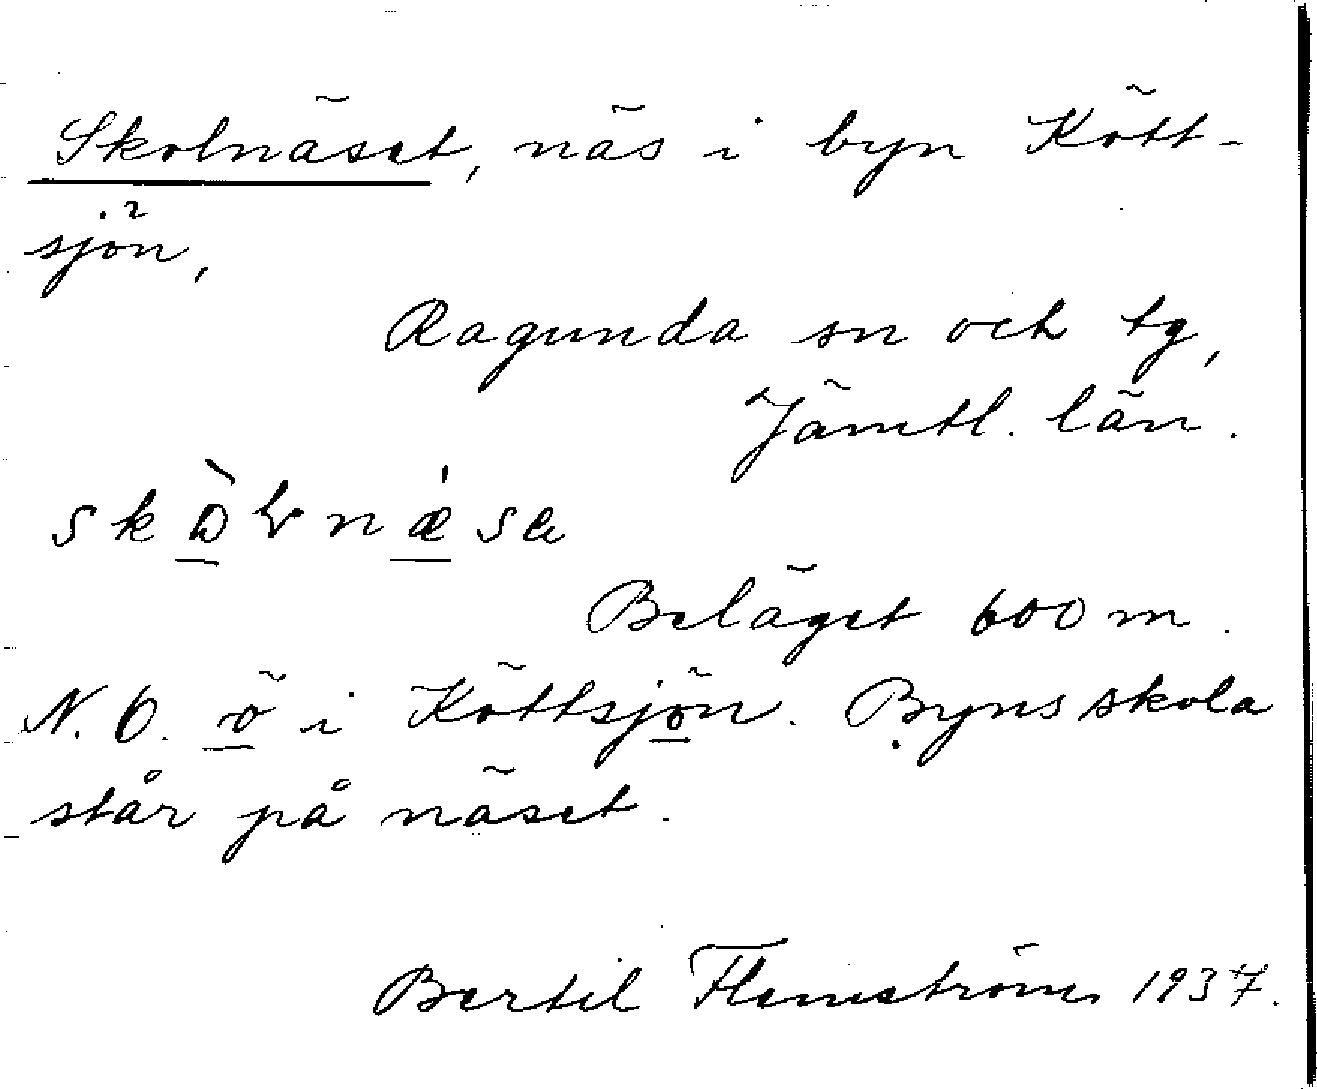 Skolnäset, näs i byn Kött-
sjön,
Ragunda sn och tg,
Jämtl. län.
Beläget 600 m.
N.O. ö i Köttsjön. Byns skola
står på näset.
Bertil Flemström 1937.